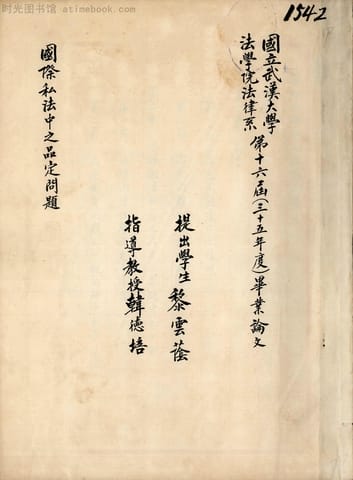 1542
國立武漢大學
法學院法律系
第十六屆(三十五年度)畢業論文
提出學生 黎雲蔭
指導教授 韓德培
國際私法中之品定問題
时光图书馆 - atimebook.com
时光图书馆 - atimebook.com